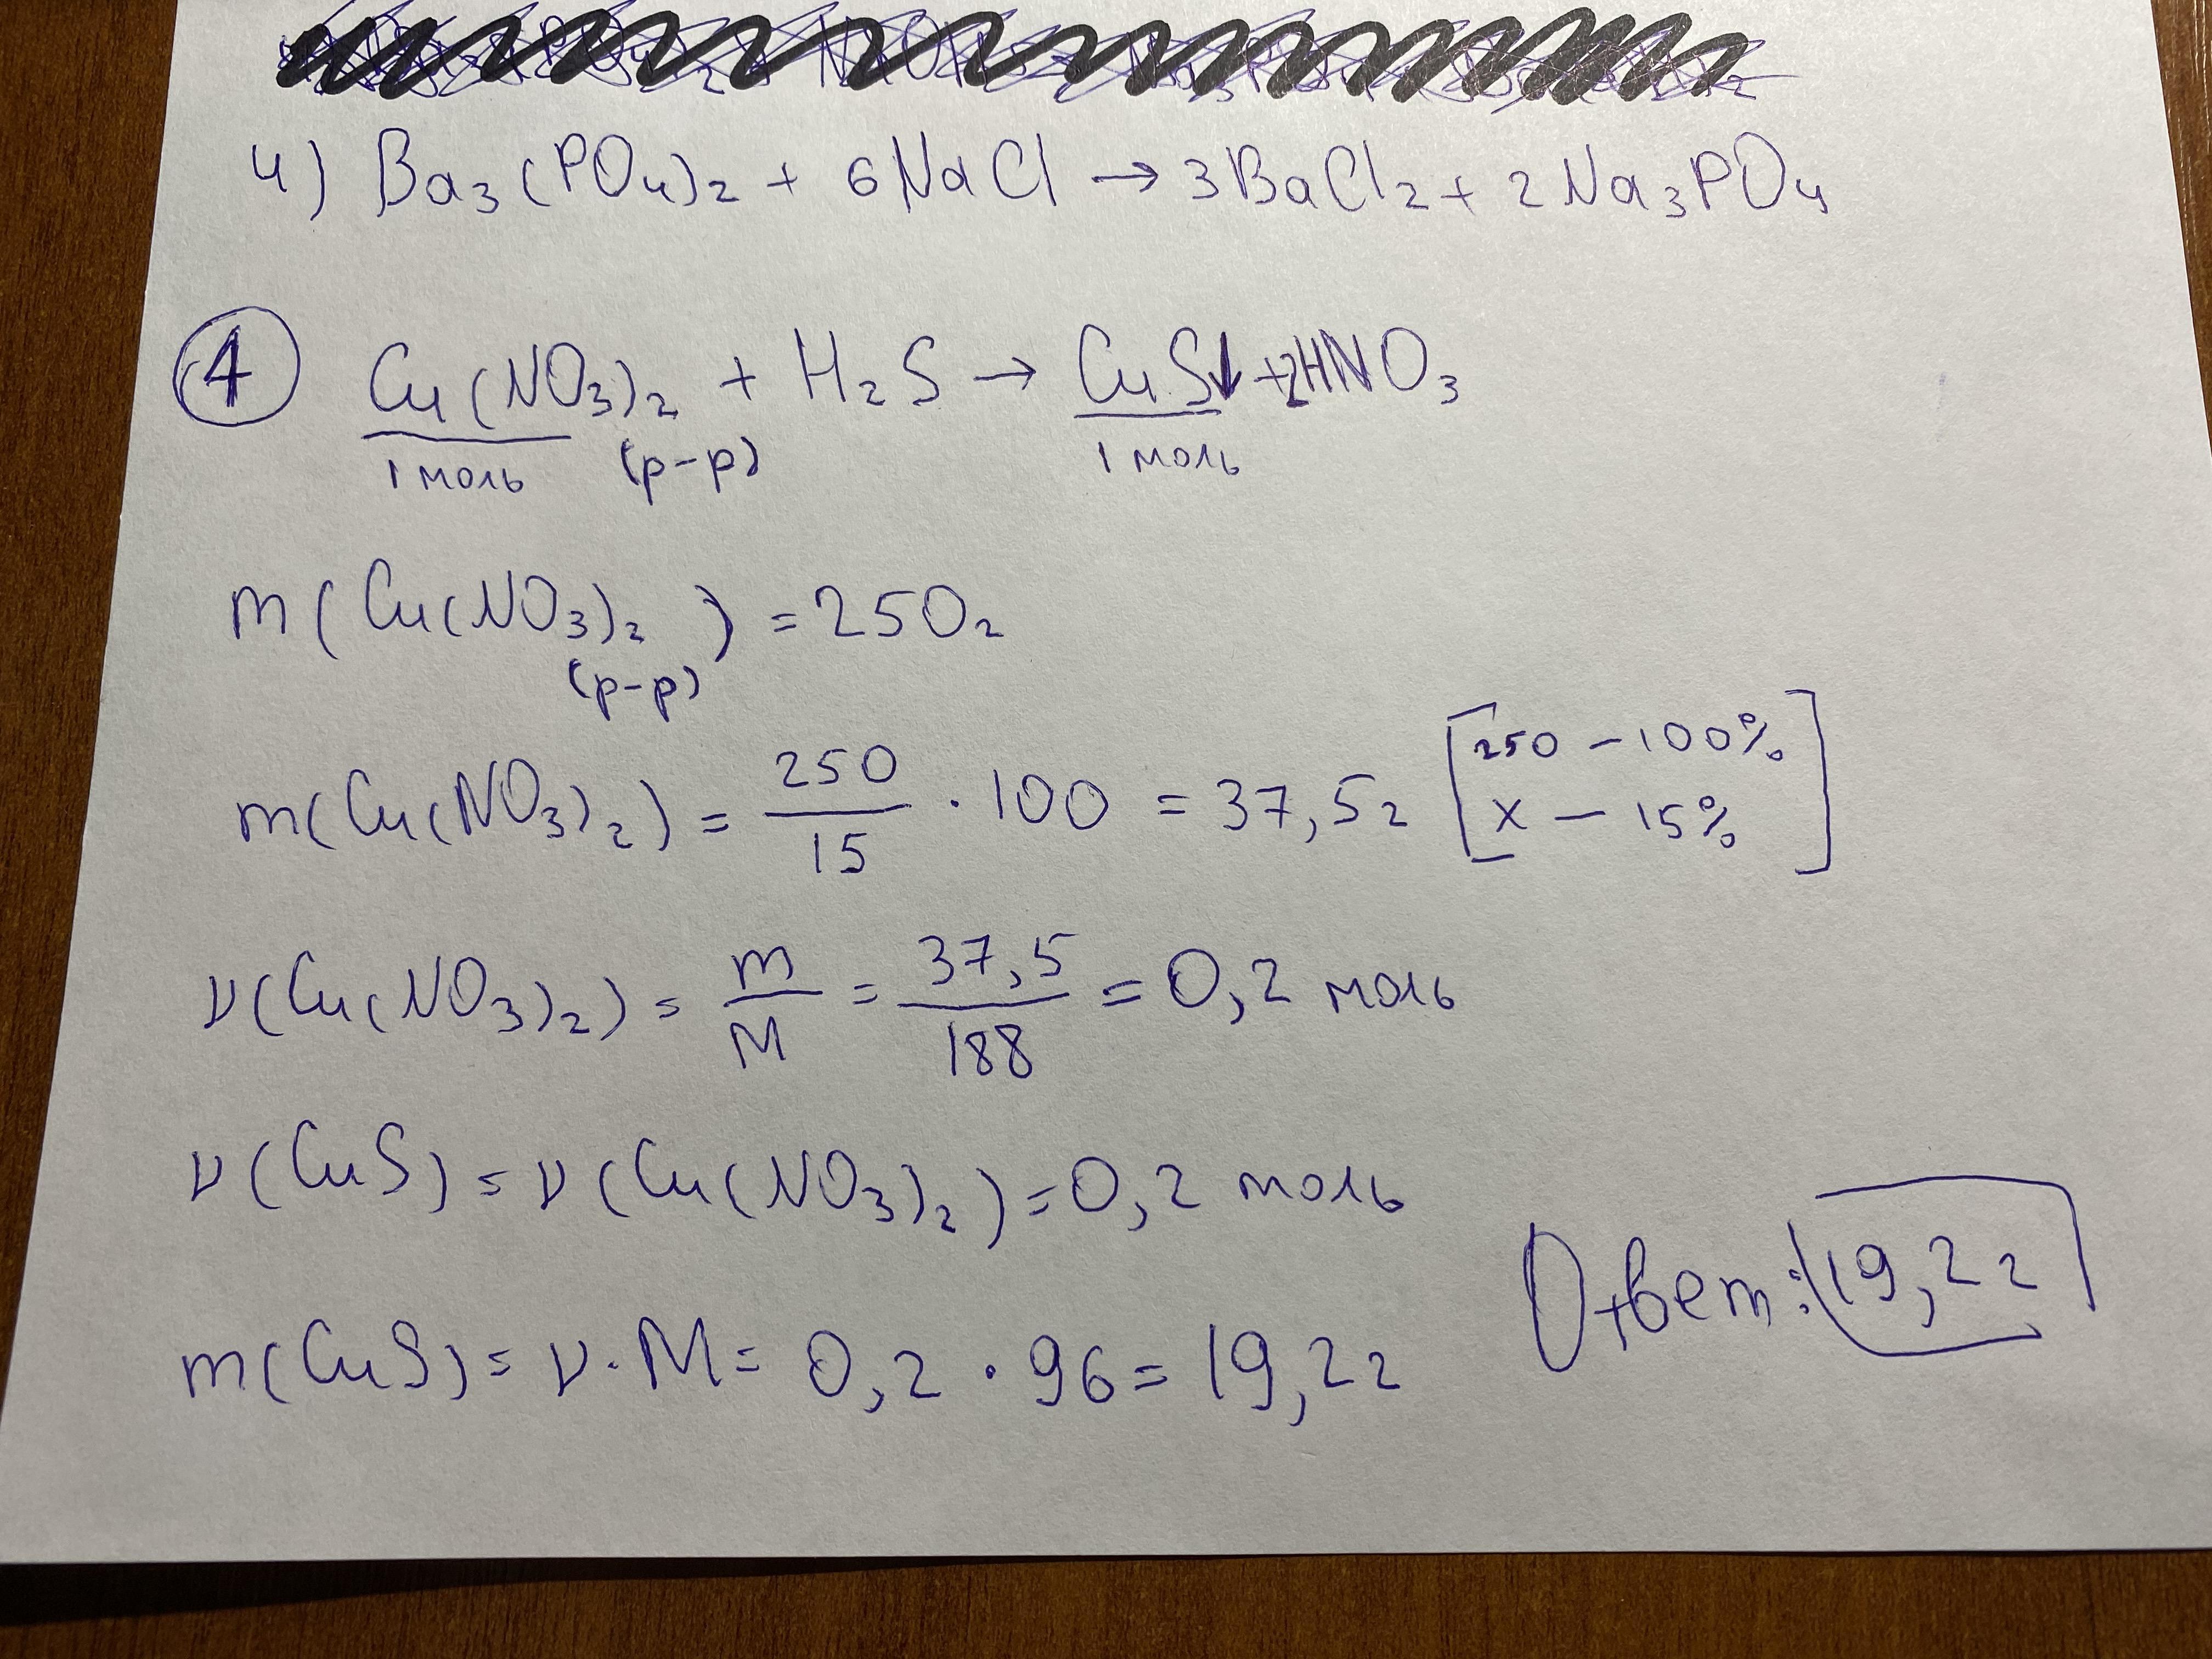 4) Ba₃(PO₄)₂ + 6NaCl → 3BaCl₂ + 2Na₃PO₄
④ Cu(NO₃)₂ + H₂S → CuS↓ + 2HNO₃
1 моль (р-р) 1 моль
m(Cu(NO₃)₂ ) = 250г
(р-р)
m(Cu(NO₃)₂) = 250/15 · 100 = 37,5г [250 – 100%
x – 15%]
ν(Cu(NO₃)₂) = m/M = 37,5/188 = 0,2 моль
ν(CuS) = ν(Cu(NO₃)₂) = 0,2 моль
m(CuS) = ν·M = 0,2 · 96 = 19,2г
Ответ: 19,2г